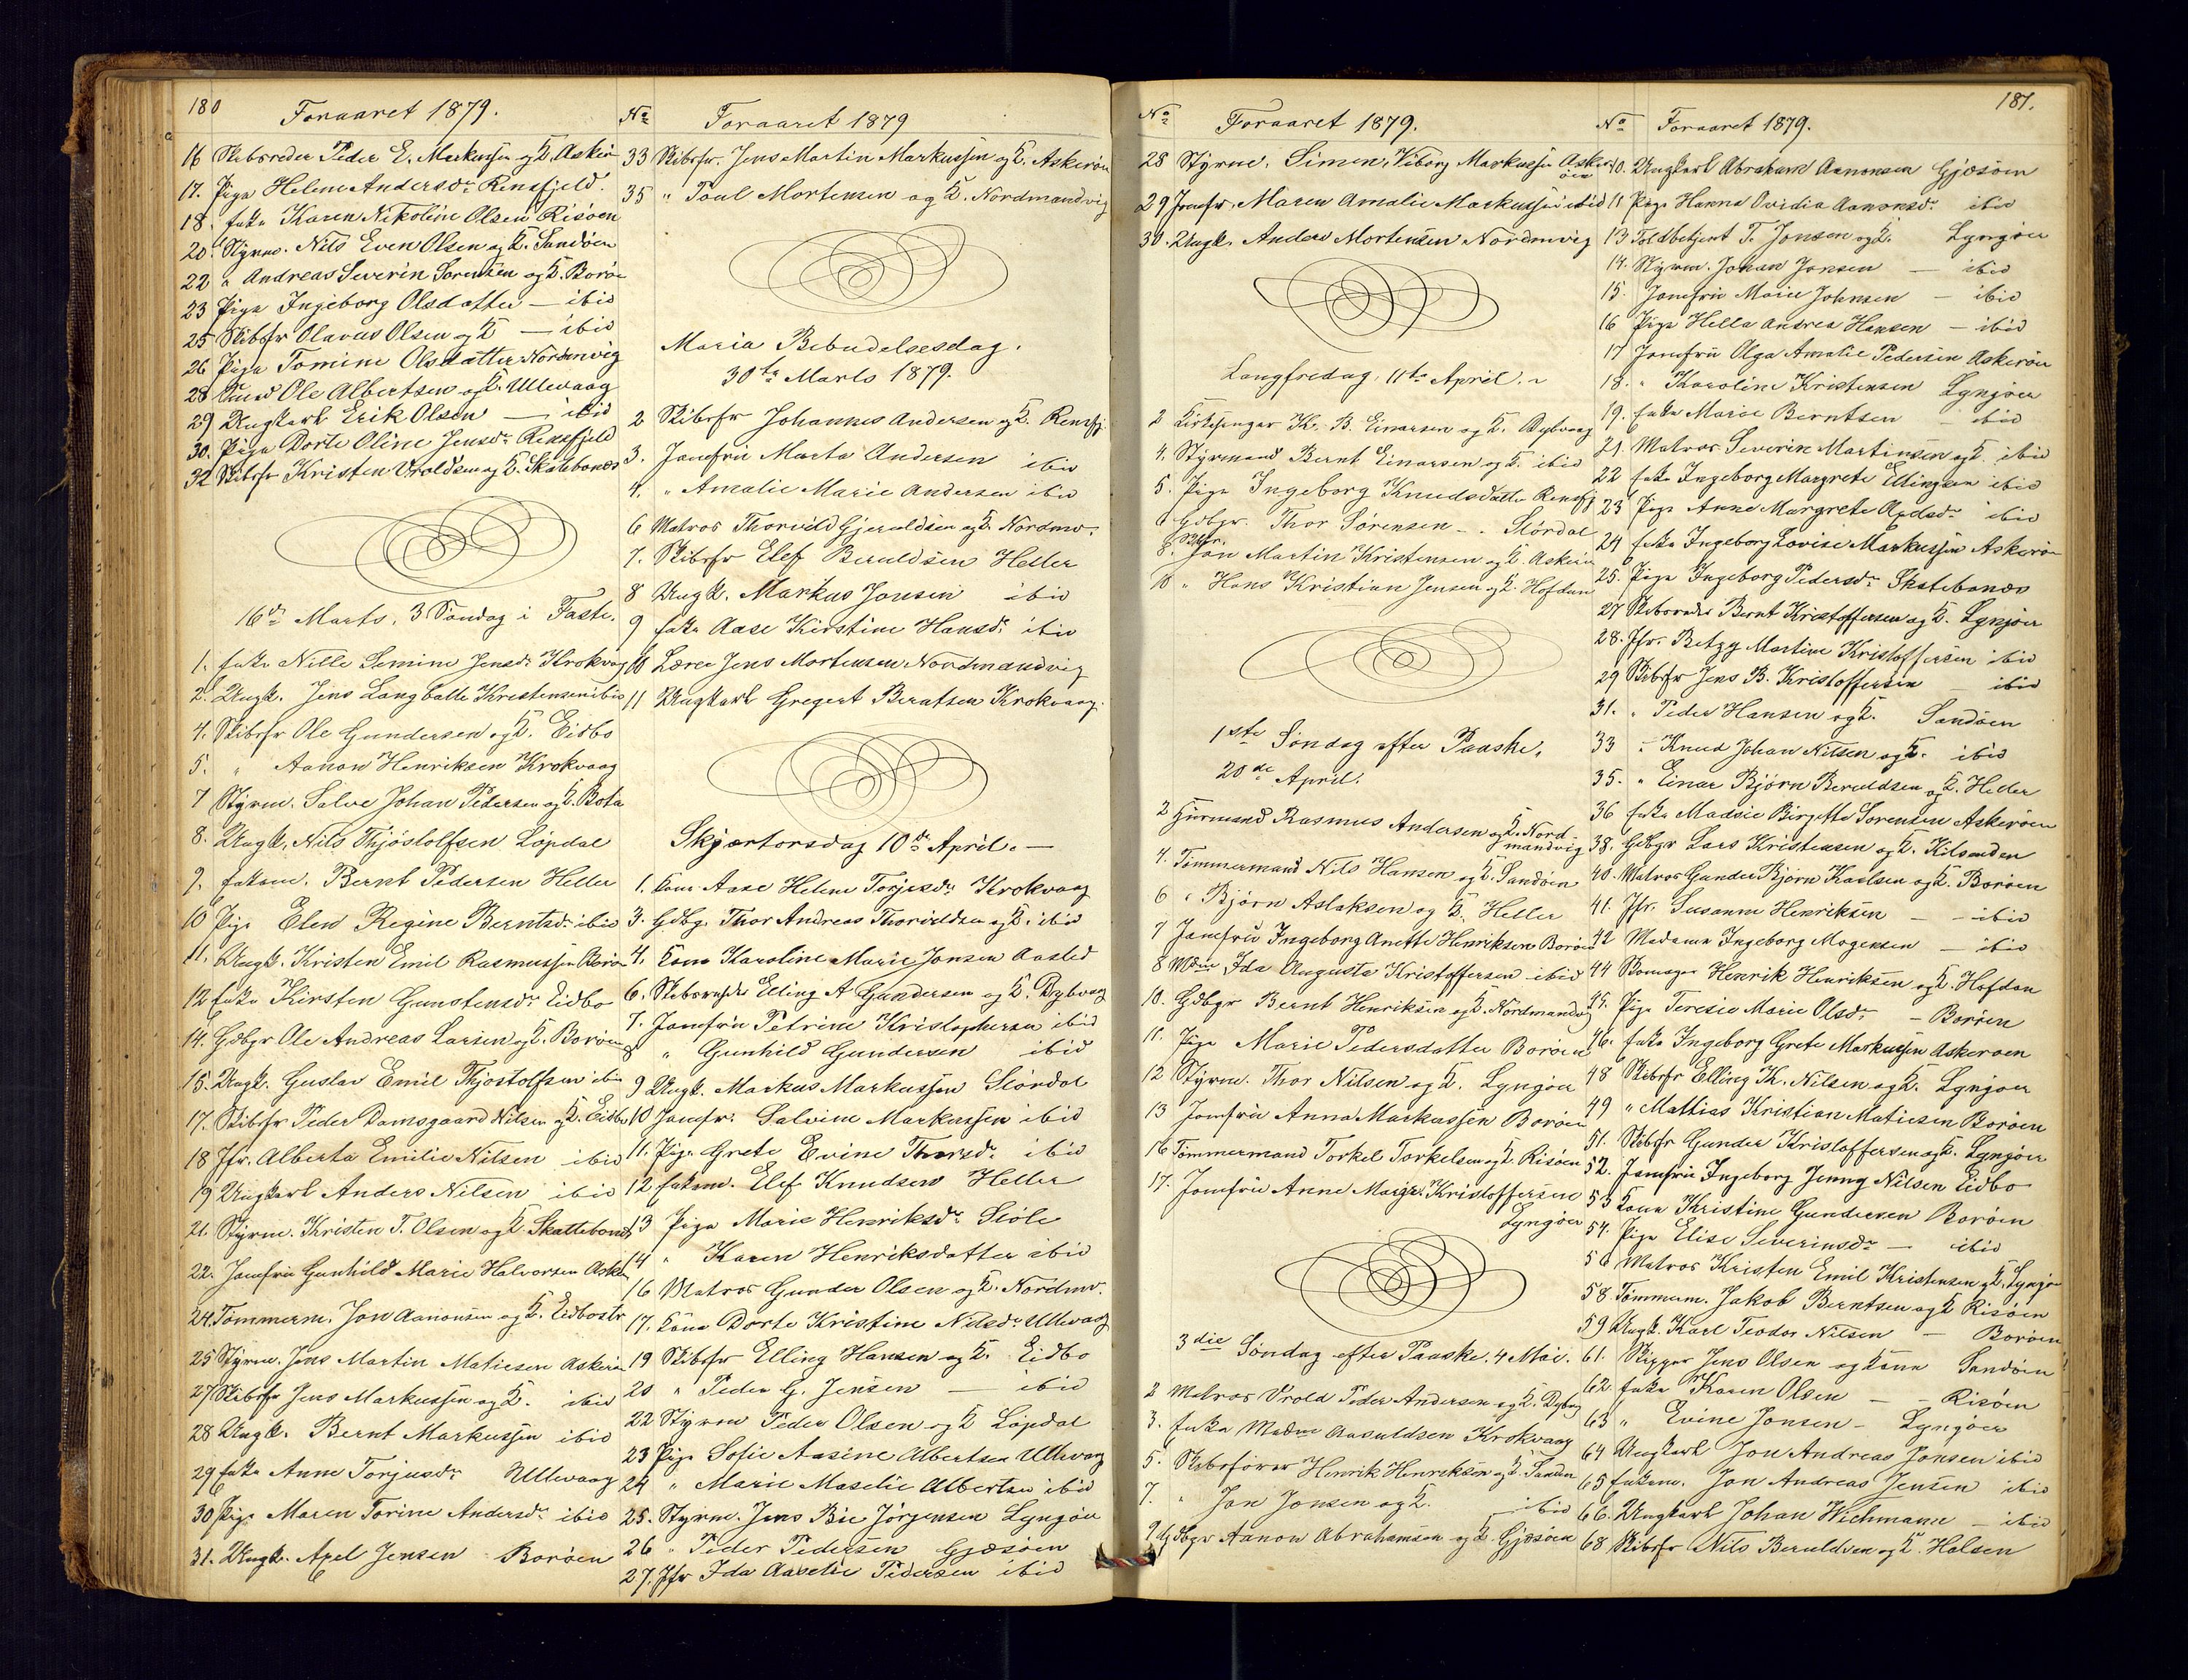 180
Foraaret 1879.
16 Skibsreder Peder E. Markussen og K. Askerø
17. Pige Helene Andersdr. Rensfjeld.
18. Enke Karen Nikoline Olsen Risøen
20. Styrm. Nils Even Olsen og K. Sandøen
22 " Andreas Severin Sørensen og K. Borøe
23 Pige Ingeborg Olsdatter — ibid
25 Skibsfr Olavus Olsen og K — ibid
26 Pige Tomine Olsdatter Nordmvig
28 Ole Albertsen og K. Ullevaag
29 Ungkarl Erik Olsen — ibid
30. Pige Dorte Oline Jensdr. Rensfjeld
32 Skibsfr Kristen Vroldsen og K. Skatebonæs
16de Marts. 3 Søndag i Faste.
1. Enke Nille Semine Jensdr. Krokvaag
2. Ungk. Jens Langballe Kristensen ibid
4. Skibsfr Ole Gundersen og K. Eidbo
5. " Aanon Henriksen Krokvaag
7 Styrm. Salve Johan Pedersen og K. Bota
8. Ungk. Nils Thjøstolfsen Løpdal
9. Enkem. Bernt Pedersen Heller
10 Pige Elen Regine Berntsdr. ibid
11. Ungk. Kristen Emil Rasmussen Borøe
12 Enke Kirsten Gunstensdr. Eidbo
14. Gdbgr Ole Andreas Larsen og K. Borøen
15. Ungk. Gustav Emil Thjøstolfsen ibid
17. Skibsfr Peder Damsgaard Nilsen og K. Eidbo
18 Jfr. Alberta Emilie Nilsen ibid
19 Ungkarl Anders Nilsen ibid
21. Styrm. Kristen T. Olsen og K Skattebonæs
22. Jomfru Gunhild Marie Halvorsen Askerø
24. Tømmerm. Jon Aanonsen og K. Eidbostr
25 Styrm. Jens Martin Matiesen Askerøen
27 Skibsfr Jens Markussen og K. ibid
28 Ungk. Bernt Markussen ibid
29 Enke Anne Torjusdr. Ullevaag
30 Pige Maren Torine Andersdr. ibid
31. Ungk. Axel Jensen Borøen
No
Foraaret 1879
33 Skibsfr. Jens Martin Markussen og K. Askerøen
35 " Poul Mortensen og K. Nordmandvig
Maria Bebudelsesdag.
30te Marts 1879.
2 Skibsfr Johannes Andersen og K. Rensfj.
3. Jomfru Marta Andersen ibid
4. " Amalie Marie Andersen ibid
6 Matros Thorvild Gjeruldsen og K. Nordmv.
7. Skibsfr Elef Beruldsen Heller
8 Ungk. Markus Jonsen ibid
9 Enke Aase Kirstine Hansdr. ibid
10 Lærer Jens Mortensen Nordmandvig
11 Ungkarl Gregert Berntsen Krokvaag.
Skjærtorsdag 10de April. —
1. Kone Aase Helene Torjesdr. Krokvaag
3. Gdbg. Thor Andreas Thorvaldsen og K. ibid
4. Kone Karoline Marie Jonsen Aasted
6. Skibsreder Elling A Gundersen og K. Dybvaag
7. Jomfru Petrine Kristophersen ibid
8 " Gunhild Gundersen ibid
9 Ungk. Markus Markussen Størdal
10 Jomfr. Salvine Markussen ibid
11. Pige Grete Evine Thorsdr. ibid
12. Enkem. Elef Knudsen Heller
13 Pige Marie Henriksdr. Støle
14 " Karen Henriksdatter ibid
16 Matros Gunder Olsen og K. Nordmv.
17. Kone Dorte Kristine Nilsdr. Ullevaag
19 Skibsfr Elling Hansen og K. Eidbo
20 " Peder G. Jensen — ibid
22 Styrm Peder Olsen og K Løpdal
23 Pige Sofie Aasine Albertsen Ullevaag
24 " Marie Maselie Albertsen ibid
25. Styrm. Jens Bie Jørgensen Lyngøer
26 " Peder Pedersen Gjæsøen
27. Jfr Ida Aavelie Pedersen ibid
No
Foraaret 1879.
28 Styrm. Simen Viborg Markussen Askerøen
29 Jomfr. Maren Amalie Markussen ibid
30. Ungk. Anders Mortensen Nordmvig
Langfredag, 11te April.
2 Kirkesanger K. B. Einarsen og K. Dybvaag
4. Styrmand Bernt Einarsen og K. ibid
5. Pige Ingeborg Knudsdatter Rensfj
6 Gdbgr. Thor Sørensen — Størdal
8. Skibsfr. Jon Martin Kristensen og K. Askerøen
10 " Hans Kristian Jensen og K. Hofdan
1ste Søndag efter Paaske,
20de April.
2 Rasmus Andersen og K. Nordmandvig
4. Tømmermand Nils Hansen og K. Sandøen
6 " Bjørn Aslaksen og K. Heller
7 Jomfru Ingeborg Anette Henriksen Borøen
8 Mdme Ida Augusta Kristoffersen ibid
10. Gdbgr Bernt Henriksen og K. Nordmandvig
11. Pige Marie Pedersdatter Borøen
12 Styrm. Thor Nilsen og K. Lyngøer
13 Jomfru Anna Markussen Borøen
16 Tømmermand Torkel Torkelsen og K. Risøen
17. Jomfru Anne Margr. Kristoffersen
Lyngøer
3die Søndag efter Paaske. 4 Mai.
2 Matros Vrold Peder Andersen og K. Dybvg
3. Enke Madme Aasuldsen Krokvaag
5. Skibsfører Henrik Henriksen og K. Sandøen
7. " Jon Jonsen og K. — ibid
9 Gdbgr Aanon Abrahamsen og K. Gjæsøen
181.
No
Foraaret 1879.
10. Ungkarl Abraham Aanonsen Gjæsøen
11 Pige Hanna Ovidia Aanonsdr. ibid
13 Toldbetjent T. Jonsen og K. Lyngøer
14. Styrm. Johan Jonsen — ibid
15. Jomfru Marie Johnsen — ibid
16 Pige Hella Andrea Hansen — ibid
17 Jomfru Olga Amalie Pedersen Askerøen
18. " Karoline Kristensen Lyngøer
19. Enke Marie Berntsen ibid
21. Matros Severin Martinsen og K. ibid
22 Enke Ingeborg Margrete Ellingsen ibid
23 Pige Anne Margrete Axelsdr. ibid
24 Enke Ingeborg Lovise Markussen Askerøe
25. Pige Ingeborg Pedersdr. Skatebonæs
27 Skibsreder Bernt Kristoffersen og K. Lyngøer
28. Jfr. Betzy Martine Kristoffersen ibid
29 Skibsfr Jens B. Kristoffersen — ibid
31. " Peder Hansen og K. Sandøen
33 " Knud Johan Nilsen og K. ibid
35. " Einar Bjørn Beruldsen og K. Heller
36 Enke Madsie Birgitte Sørensen Askerøen
38. Gdbgr Lars Kristensen og K. Kilsanden
40. Matros Gunder Bjørn Karlsen og K. Borøen
41. Jfr. Susanne Henriksen — ibid
42 Madame Ingeborg Mogensen — ibid
44 Henrik Henriksen og K. Hofdan
45. Pige Teresie Marie Olsdr. — Borøen
46. Enke Ingeborg Grete Markussen Askerøen
48 Skibsfr Elling K. Nilsen og K. Lyngøer
49 " Mathias Kristian Matiesen Borøen
51. Skibsfr Gunder Kristoffersen og K. Lyngøer
52. Jomfru Ingeborg Jenny Nilsen Eidbo
53 Kone Kristine Gundersen Borøen
54. Pige Elise Severinsdr. — ibid
56 Matros Kristen Emil Kristensen og K. Lyngøe
58. Tømmerm. Jakob Berntsen og K Risøen
59 Ungk. Karl Teodor Nilsen — Borøen
61. Skipper Jens Olsen og Kone Sandøen
62. Enke Karen Olsen — Risøen
63 " Evine Jonsen — Lyngøer
64 Ungkarl Jon Andreas Jonsen ibid
65 Enkem. Jon Andreas Jensen ibid
66. Ungkarl Johan Wichmann — ibid
68 Skibsfr Nils Beruldsen og K. Holsen